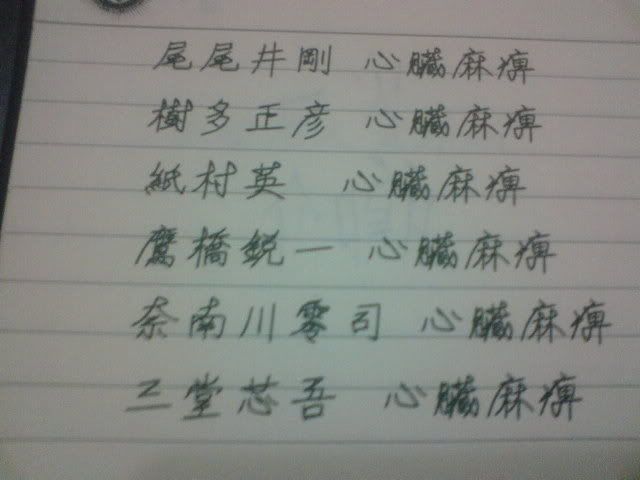 尾尾井剛 心臓麻痺
樹多正彦 心臓麻痺
紙村英 心臓麻痺
鷹橋鋭一 心臓麻痺
奈南川零司 心臓麻痺
三堂芯吾 心臓麻痺